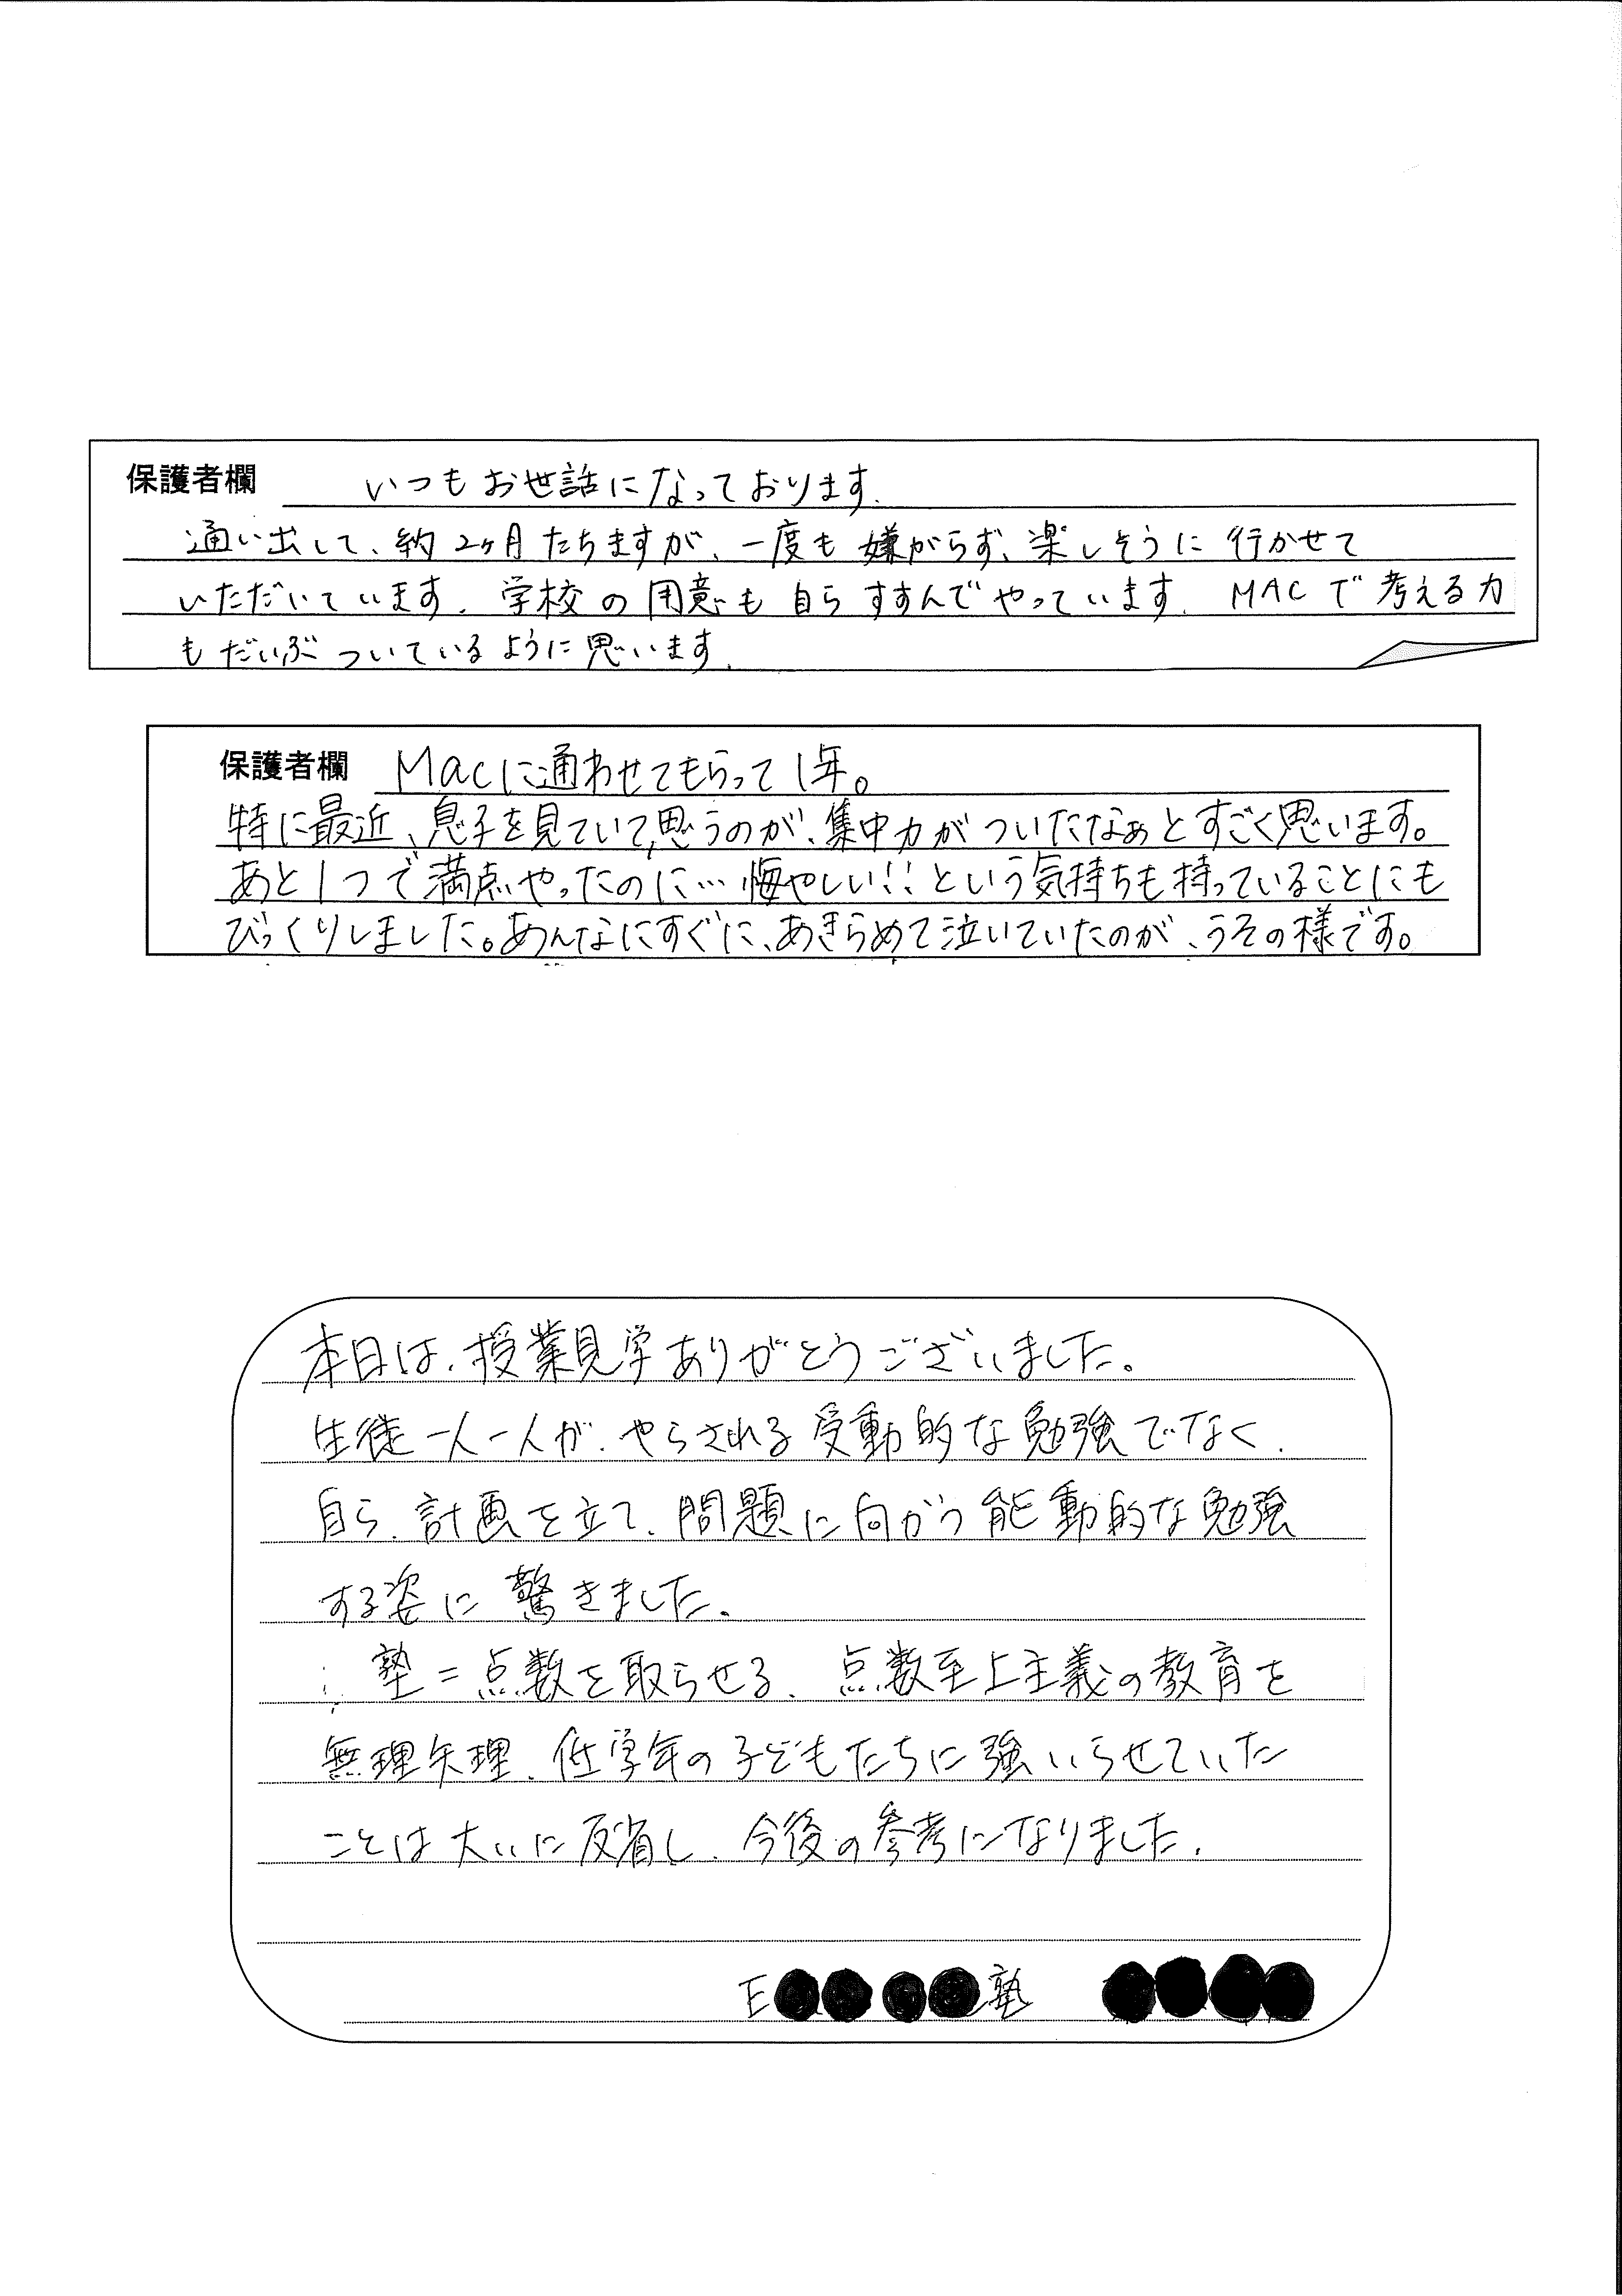 保護者欄 いつもお世話になっております.
通い出して、約2ヶ月たちますが、一度も嫌がらず、楽しそうに行かせて
いただいています. 学校の用意も自らすすんでやっています. MACで考える力
もだいぶついているように思います.
保護者欄 Macに通わせてもらって1年。
特に最近、息子を見ていて、思うのが、集中力がついたなぁとすごく思います。
あと1つで満点やったのに…悔やしい!!という気持ちも持っていることにも
びっくりしました。あんなにすぐに、あきらめて泣いていたのが、うその様です。
本日は、授業見学ありがとうございました。
生徒一人一人が、やらされる受動的な勉強でなく、
自ら、計画を立て、問題に向かう能動的な勉強
する姿に驚きました。
塾=点数を取らせる、点数至上主義の教育を
無理矢理、低学年の子どもたちに強いらせていた
ことは大いに反省し、今後の参考になりました.
E 塾